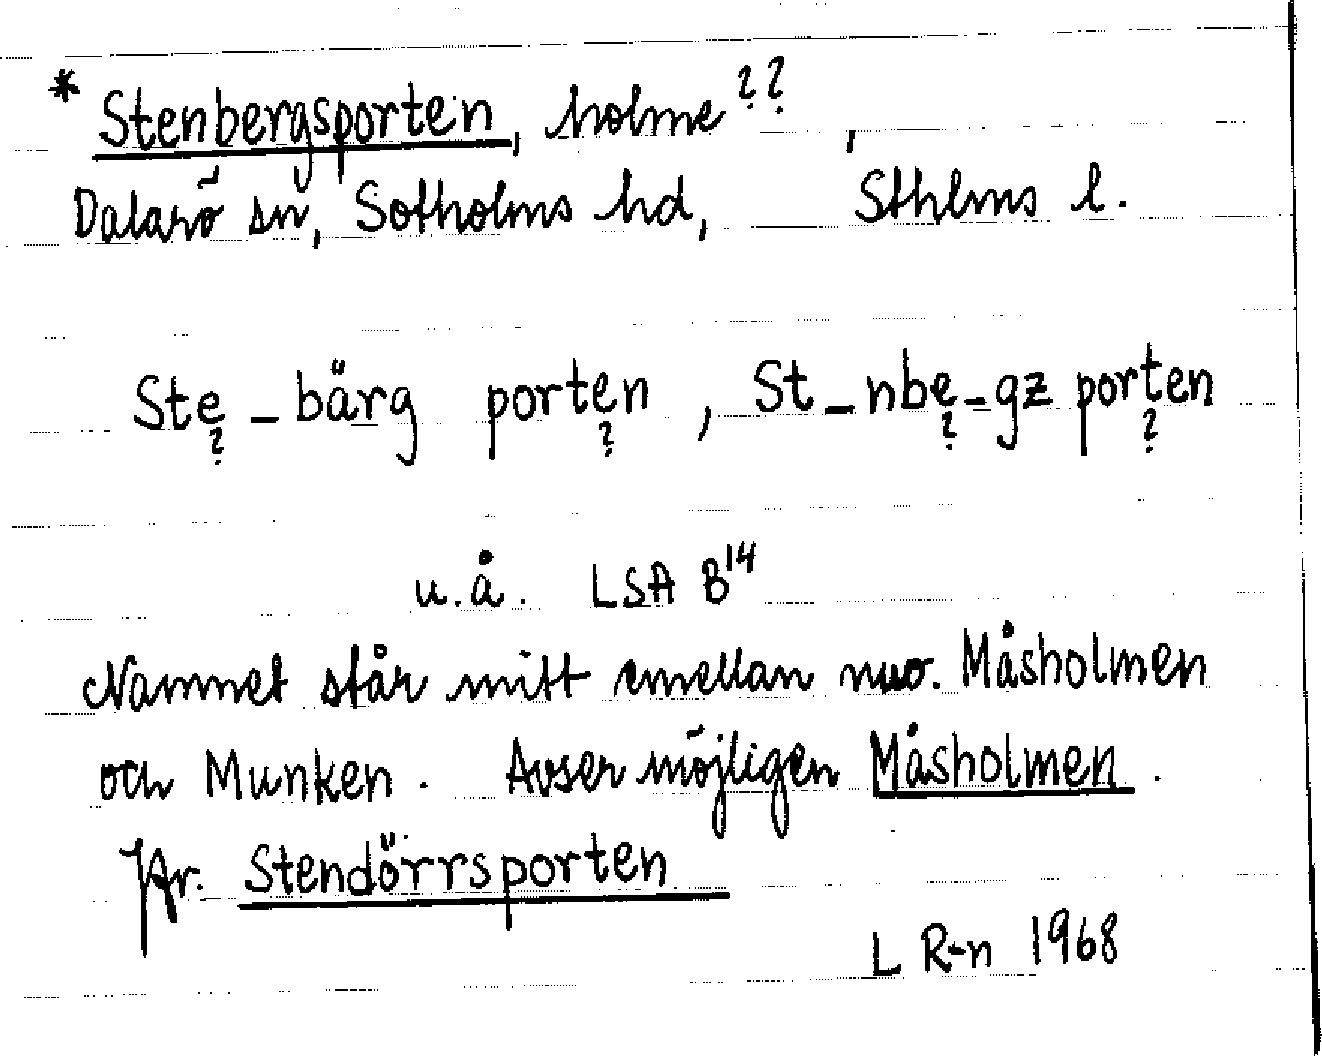 * Stenbergsporten, holme ??,
Dalarö sn, Sotholms hd, Sthlms l.
Ste_bärg porten, St_nbe_gz porten
? ? ? ?
u.å. LSA B14
Namnet står mitt emellan nuv. Måsholmen
och Munken. Avser möjligen Måsholmen.
Jfr. Stendörrsporten
L R-n 1968